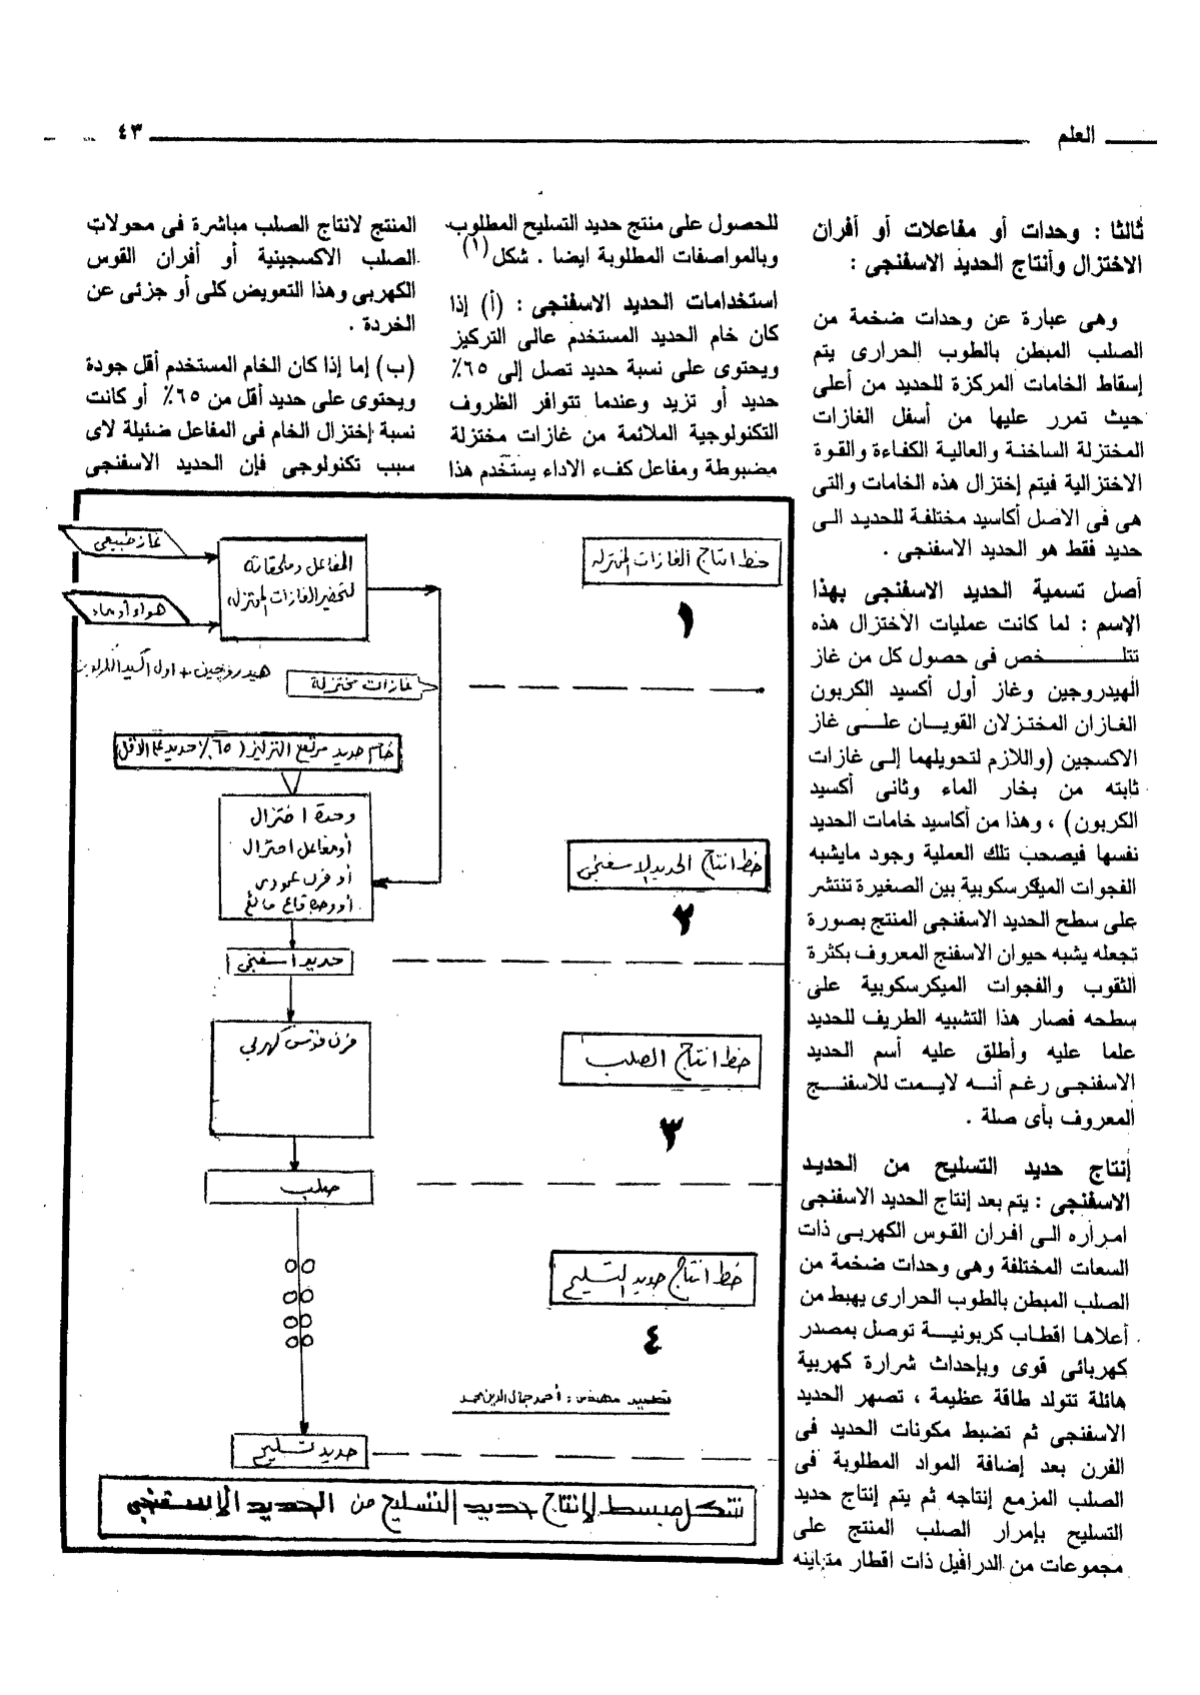 العلم
٤٣
ثالثا : وحدات أو مفاعلات أو أفران
الاختزال وأنتاج الحديد الاسفنجى :
وهى عبارة عن وحدات ضخمة من
الصلب المبطن بالطوب الحرارى يتم
إسقاط الخامات المركزة للحديد من أعلى
حيث تمرر عليها من أسفل الغازات
المختزلة الساخنة والعالية الكفاءة والقوة
الاختزالية فيتم إختزال هذه الخامات والتى
هى فى الاصل أكاسيد مختلفة للحديد الى
حديد فقط هو الحديد الاسفنجى .
أصل تسمية الحديد الاسفنجى بهذا
الإسم : لما كانت عمليات الاختزال هذه
تتلــــــخص فى حصول كل من غاز
الهيدروجين وغاز أول أكسيد الكربون
الغازان المختزلان القويان علـــى غاز
الاكسجين (واللازم لتحويلهما إلى غازات
ثابته من بخار الماء وثانى أكسيد
الكربون) ، وهذا من أكاسيد خامات الحديد
نفسها فيصحب تلك العملية وجود مايشبه
الفجوات الميكرسكوبية بين الصغيرة تنتشر
على سطح الحديد الاسفنجى المنتج بصورة
تجعله يشبه حيوان الاسفنج المعروف بكثرة
الثقوب والفجوات الميكرسكوبية على
سطحه فصار هذا التشبيه الطريف للحديد
علما عليه وأطلق عليه أسم الحديد
الاسفنجى رغم أنــه لايــمت للاسفنــج
المعروف بأى صلة .
إنتاج حديد التسليح من الحديد
الاسفنجى : يتم بعد إنتاج الحديد الاسفنجى
امراره الى افران القوس الكهربى ذات
السعات المختلفة وهى وحدات ضخمة من
الصلب المبطن بالطوب الحرارى يهبط من
أعلاها اقطاب كربونيــة توصل بمصدر
كهربائى قوى وبإحداث شرارة كهربية
هائلة تتولد طاقة عظيمة ، تصهر الحديد
الاسفنجى ثم تضبط مكونات الحديد فى
الفرن بعد إضافة المواد المطلوبة فى
الصلب المزمع إنتاجه ثم يتم إنتاج حديد
التسليح بإمرار الصلب المنتج على
مجموعات من الدرافيل ذات اقطار متباينه
للحصول على منتج حديد التسليح المطلوب
وبالمواصفات المطلوبة ايضا . شكل (١)
استخدامات الحديد الاسفنجى : (أ) إذا
كان خام الحديد المستخدم عالى التركيز
ويحتوى على نسبة حديد تصل إلى ٦٥٪
حديد أو تزيد وعندما تتوافر الظروف
التكنولوجية الملائمة من غازات مختزلة
مضبوطة ومفاعل كفء الاداء يستخدم هذا
المنتج لانتاج الصلب مباشرة فى محولات
الصلب الاكسجينية أو أفران القوس
الكهربى وهذا التعويض كلى أو جزئى عن
الخردة .
(ب) إما إذا كان الخام المستخدم أقل جودة
ويحتوى على حديد أقل من ٦٥٪ أو كانت
نسبة إختزال الخام فى المفاعل ضئيلة لاى
سبب تكنولوجى فإن الحديد الاسفنجى
خط انتاج الغازات المختزله
١
غاز طبيعى
هواء أو ماء
المفاعل وملحقاته
لتحضير الغازات المختزله
هيدروجين + اول اكسيد الكربون
غازات مختزلة
خام حديد مرتفع التركيز (٦٥٪ حديد على الأقل
وحدة اختزال
أو مفاعل اختزال
أو فرن عمودى
أو وحدة قاع مائع
خط انتاج الحديد الاسفنجى
٢
حديد اسفنجى
فرن قوس كهربى
خط انتاج الصلب
٣
صلب
خط انتاج حديد التسليح
٤
تصميد مهندس : أحمد جمال الدين محمد
حديد تسليح
شكل مبسط لإنتاج حديد التسليح من الحديد الإسفنجى